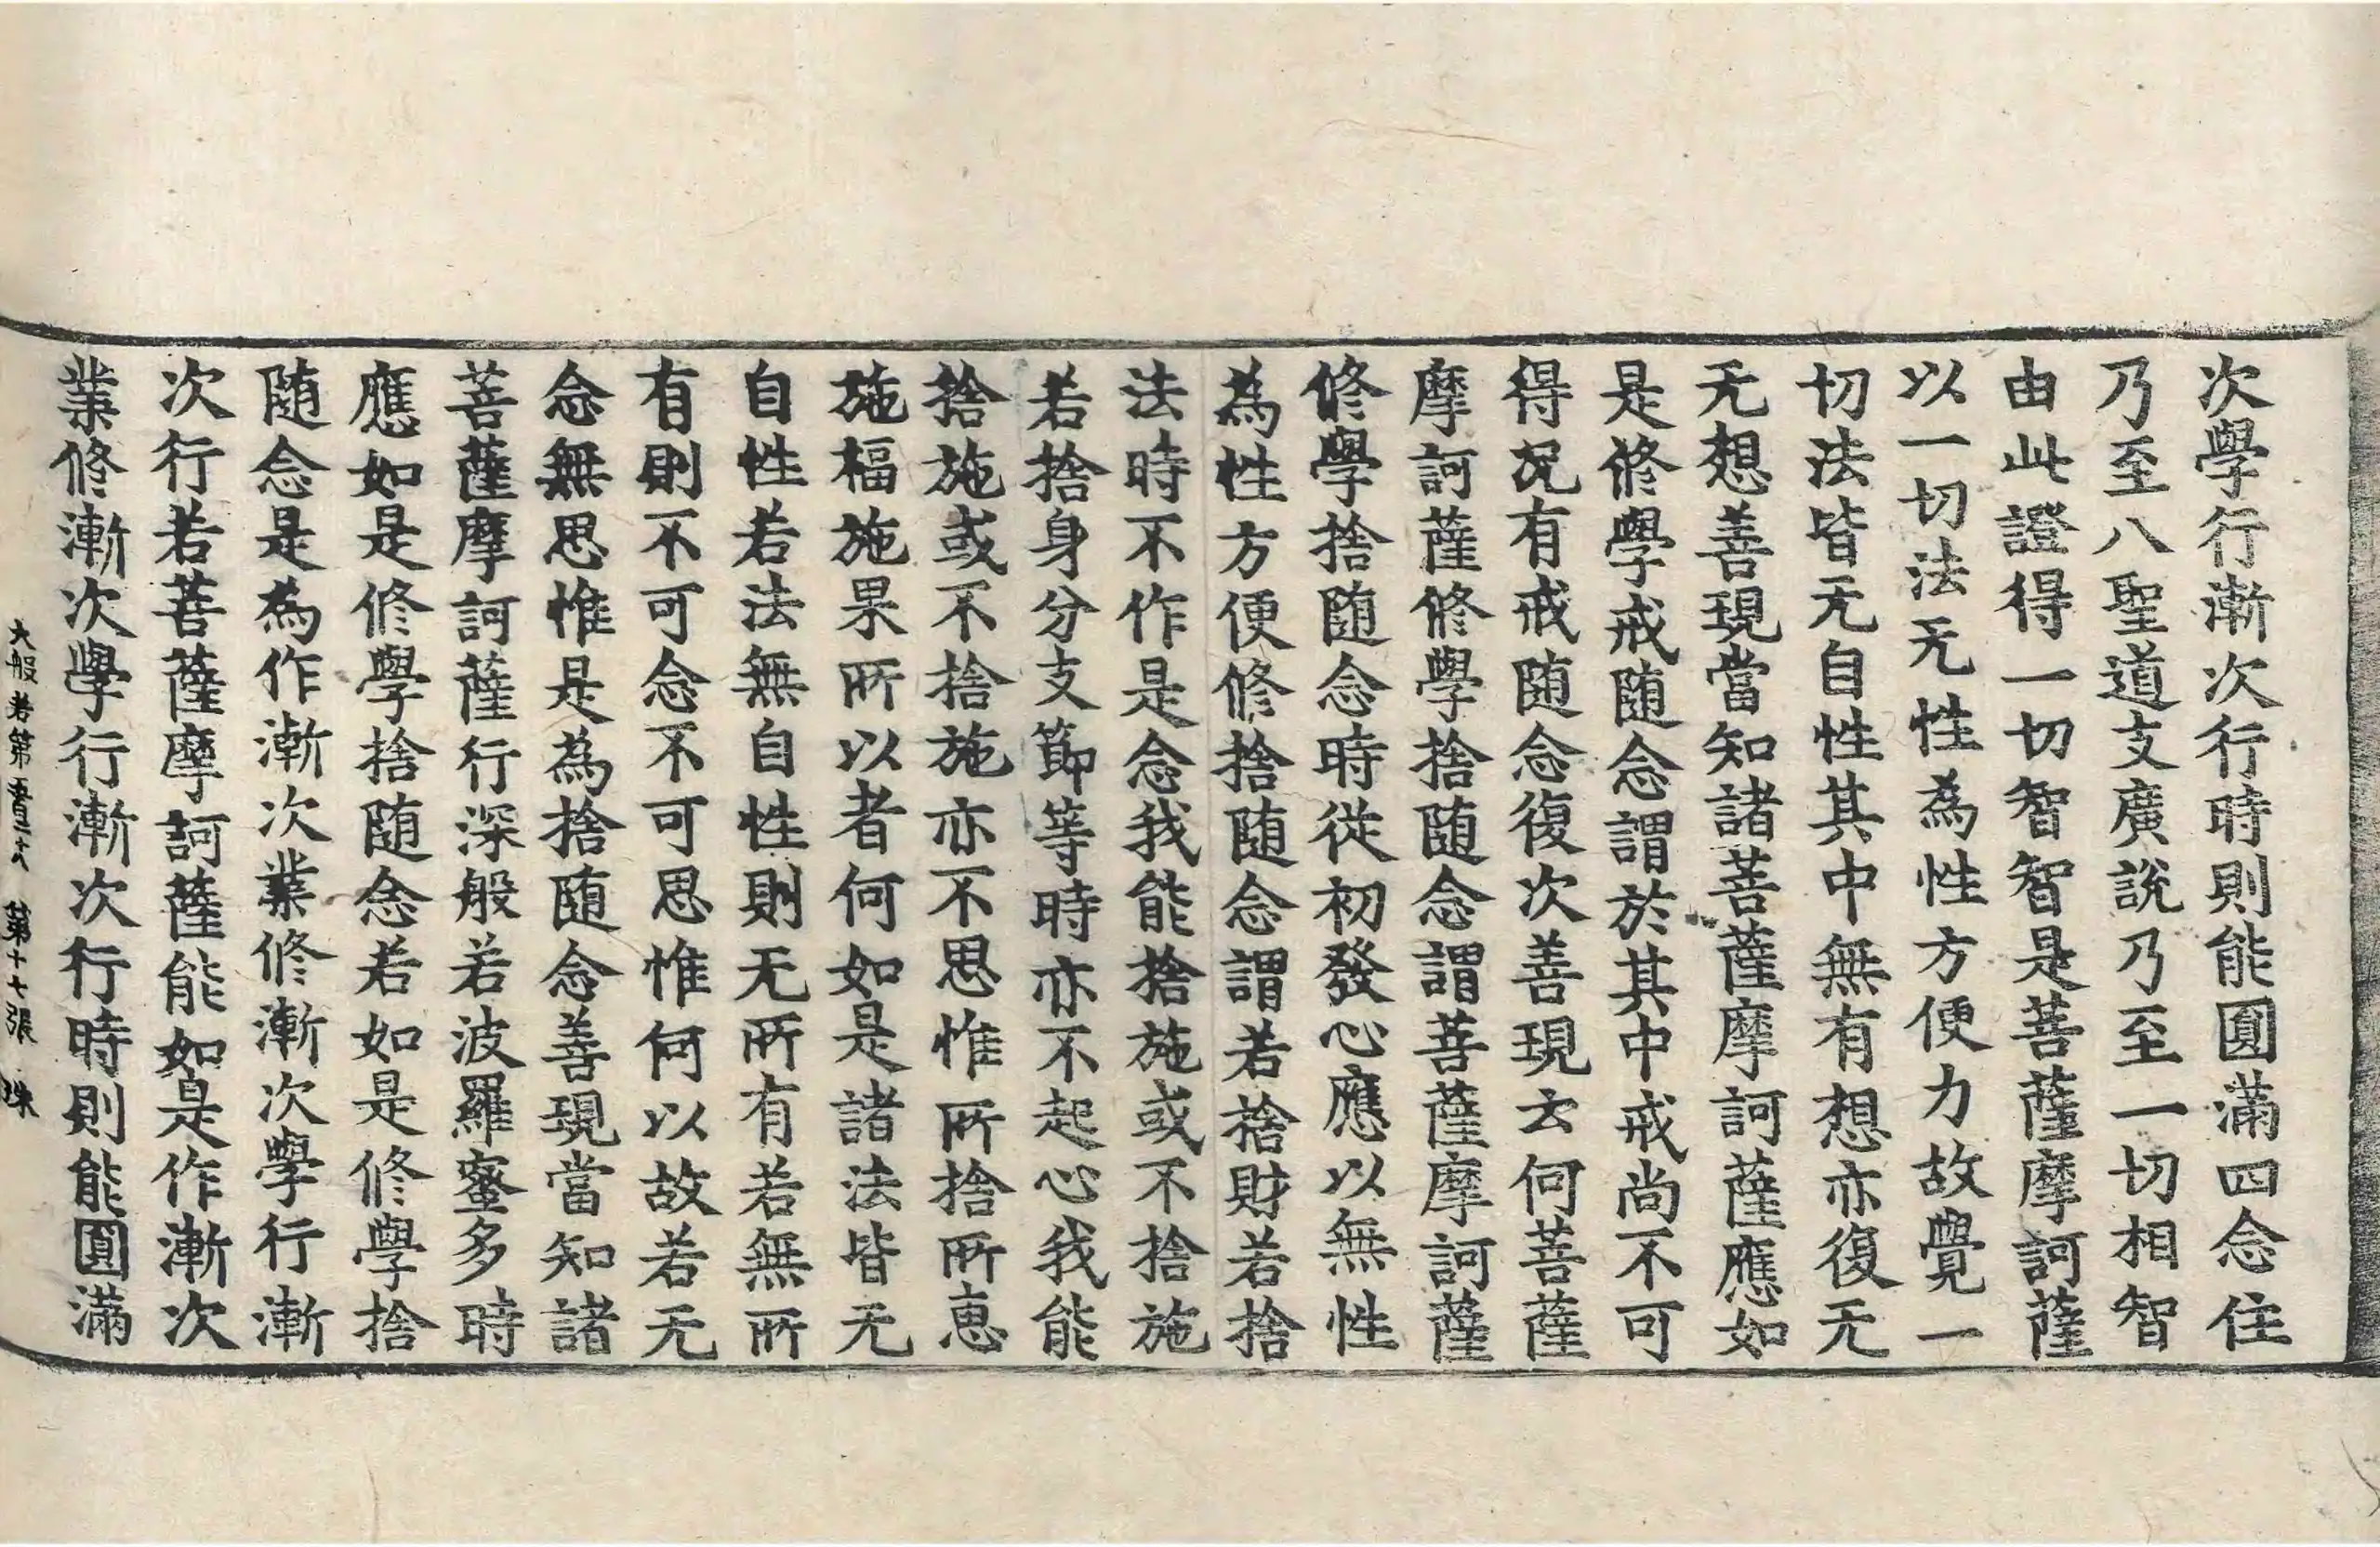 次學行漸次行時則能圓滿四念住
乃至八聖道支廣說乃至一切相智
由此證得一切智智是菩薩摩訶薩
以一切法无性為性方便力故覺一
切法皆无自性其中無有想亦復无
无想善現當知諸菩薩摩訶薩應如
是修學戒随念謂於其中戒尚不可
得况有戒随念復次善現云何菩薩
摩訶薩修學捨随念謂菩薩摩訶薩
修學捨随念時從初發心應以無性
為性方便修捨随念謂若捨財若捨
法時不作是念我能捨施或不捨施
若捨身分支節等時亦不起心我能
捨施或不捨施亦不思惟所捨所恵
施福施果所以者何如是諸法皆无
自性若法無自性則无所有若無所
有則不可念不可思惟何以故若无
念無思惟是為捨随念善現當知諸
菩薩摩訶薩行深般若波羅蜜多時
應如是修學捨随念若如是修學捨
随念是為作漸次業修漸次學行漸
次行若菩薩摩訶薩能如是作漸次
業修漸次學行漸次行時則能圓滿
大般若第五百二十八 第十七張 珠